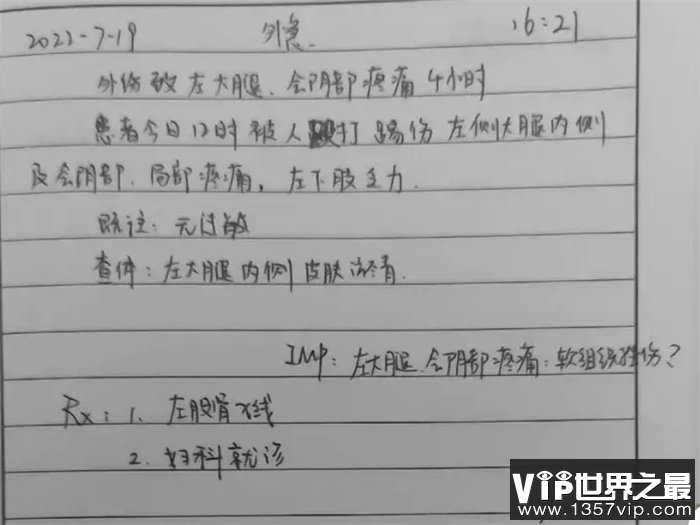 2022-7-19 外急 16:21
外伤致左大腿、会阴部疼痛4小时
患者今日12时被人殴打踢伤左侧大腿内侧
及会阴部,局部疼痛,左下肢乏力.
既往:无过敏
查体:左大腿内侧皮肤淤青.
IMP:左大腿、会阴部疼痛:软组织挫伤?
Rx:1. 左股骨X线
2. 妇科就诊
VIP世界之最
www.1357vip.com